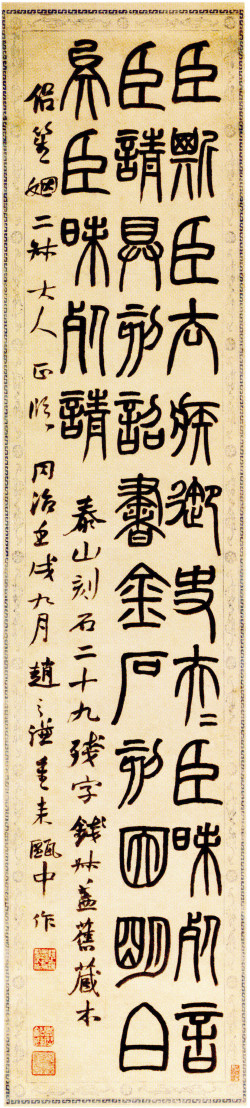 臣斯臣去疾御史夫=臣昧死言
臣請具刻詔書金石刻因明白
矣臣昧死請
泰山刻石二十九殘字錢叔蓋舊藏本
侶笙姻二叔大人正 同治壬戌九月趙之謙 甌中作